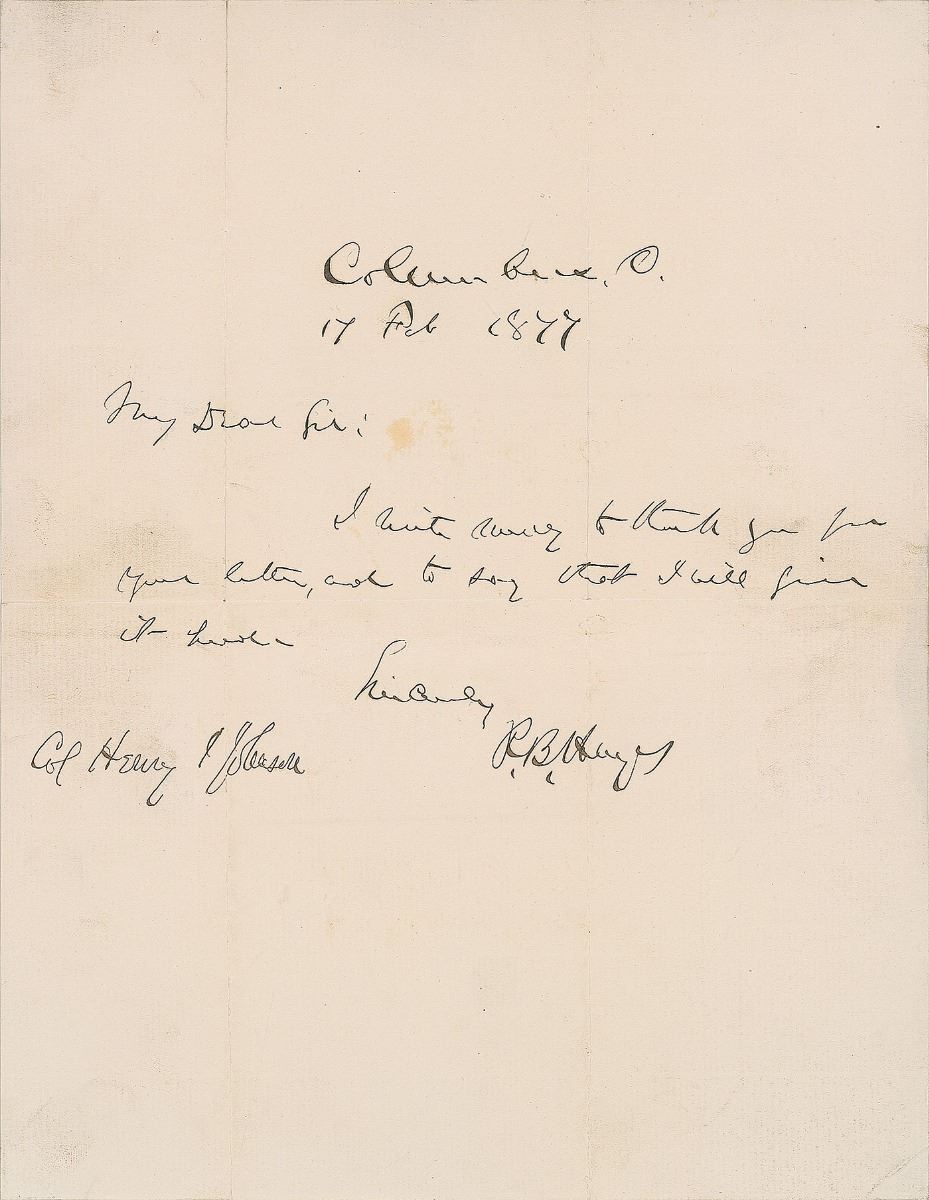 Columbus, O.
17 Feb 1877
My Dear Sir:
I write merely to thank you for
your letter, and to say that I will give
it heed.
Sincerely
R.B. Hayes
Col Henry